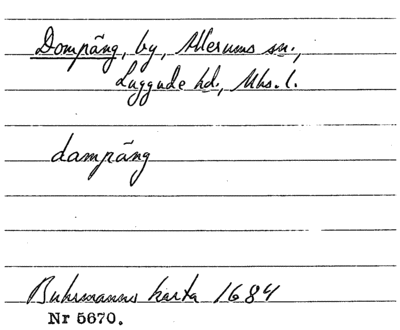 Dompäng, by, Allerums sn.,
Luggude hd., Mhs. l.
dampäng
Buhrmanns karta 1684
Nr 5670.